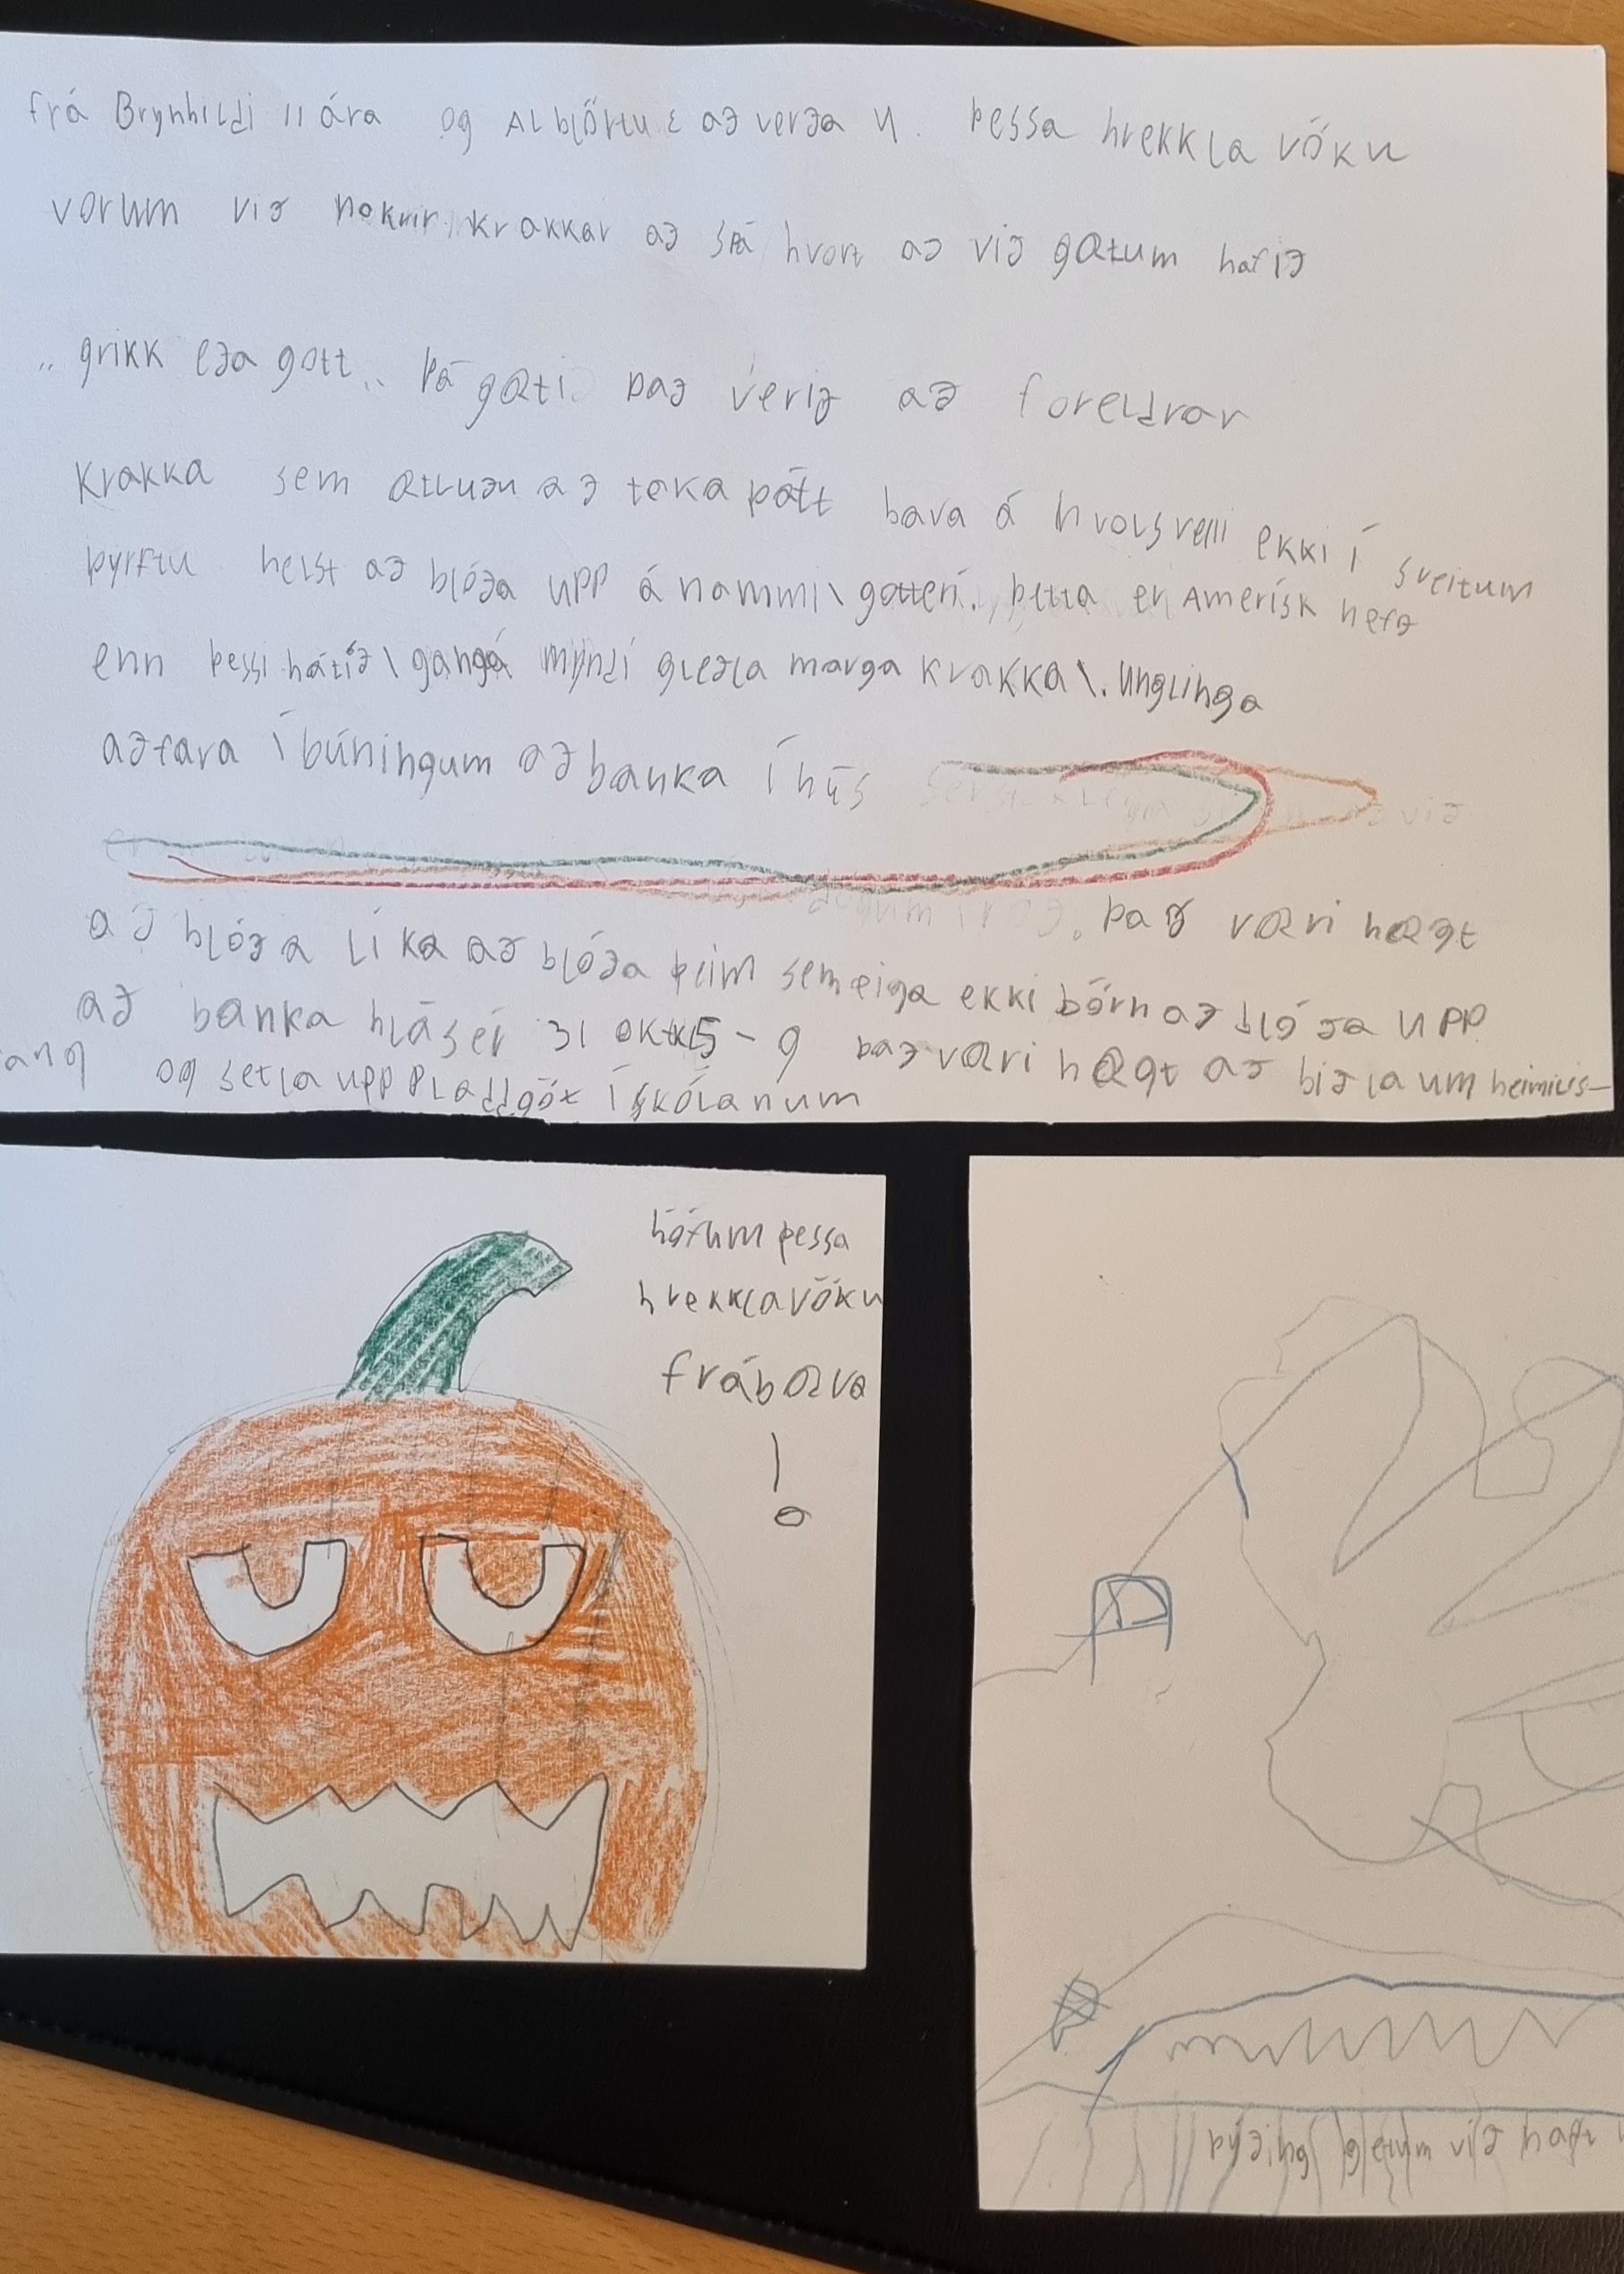 frá Brynhildi 11 ára og Albjörtu að verða 4. þessa hrekkla vöku
vorum við nokrir krakkar að spá hvort að við gætum hafið
„grikk eða gott„ þá gæti það verið að foreldrar
krakka sem ætluðu að taka þátt bara á hvolsvelli ekki í sveitum
þyrftu helst að bjóða upp á nammi\gotterí. þetta er Amerísk hefð
enn þessi hátíð\ganga myndi gleðja marga krakka\.unglinga
að fara í búningum að banka í hús
við
dögum í röð. það væri hægt
að bjóða líka að bjóða þeim sem eiga ekki börn að bjóða upp
að banka hjá sér 31 okt 5-9 það væri hægt að biðja um heimilis-
fang og setja upp pladdgöt í skólanum
höfum þessa
hrekklavöku
frábæra
!
þýðing getum við haft